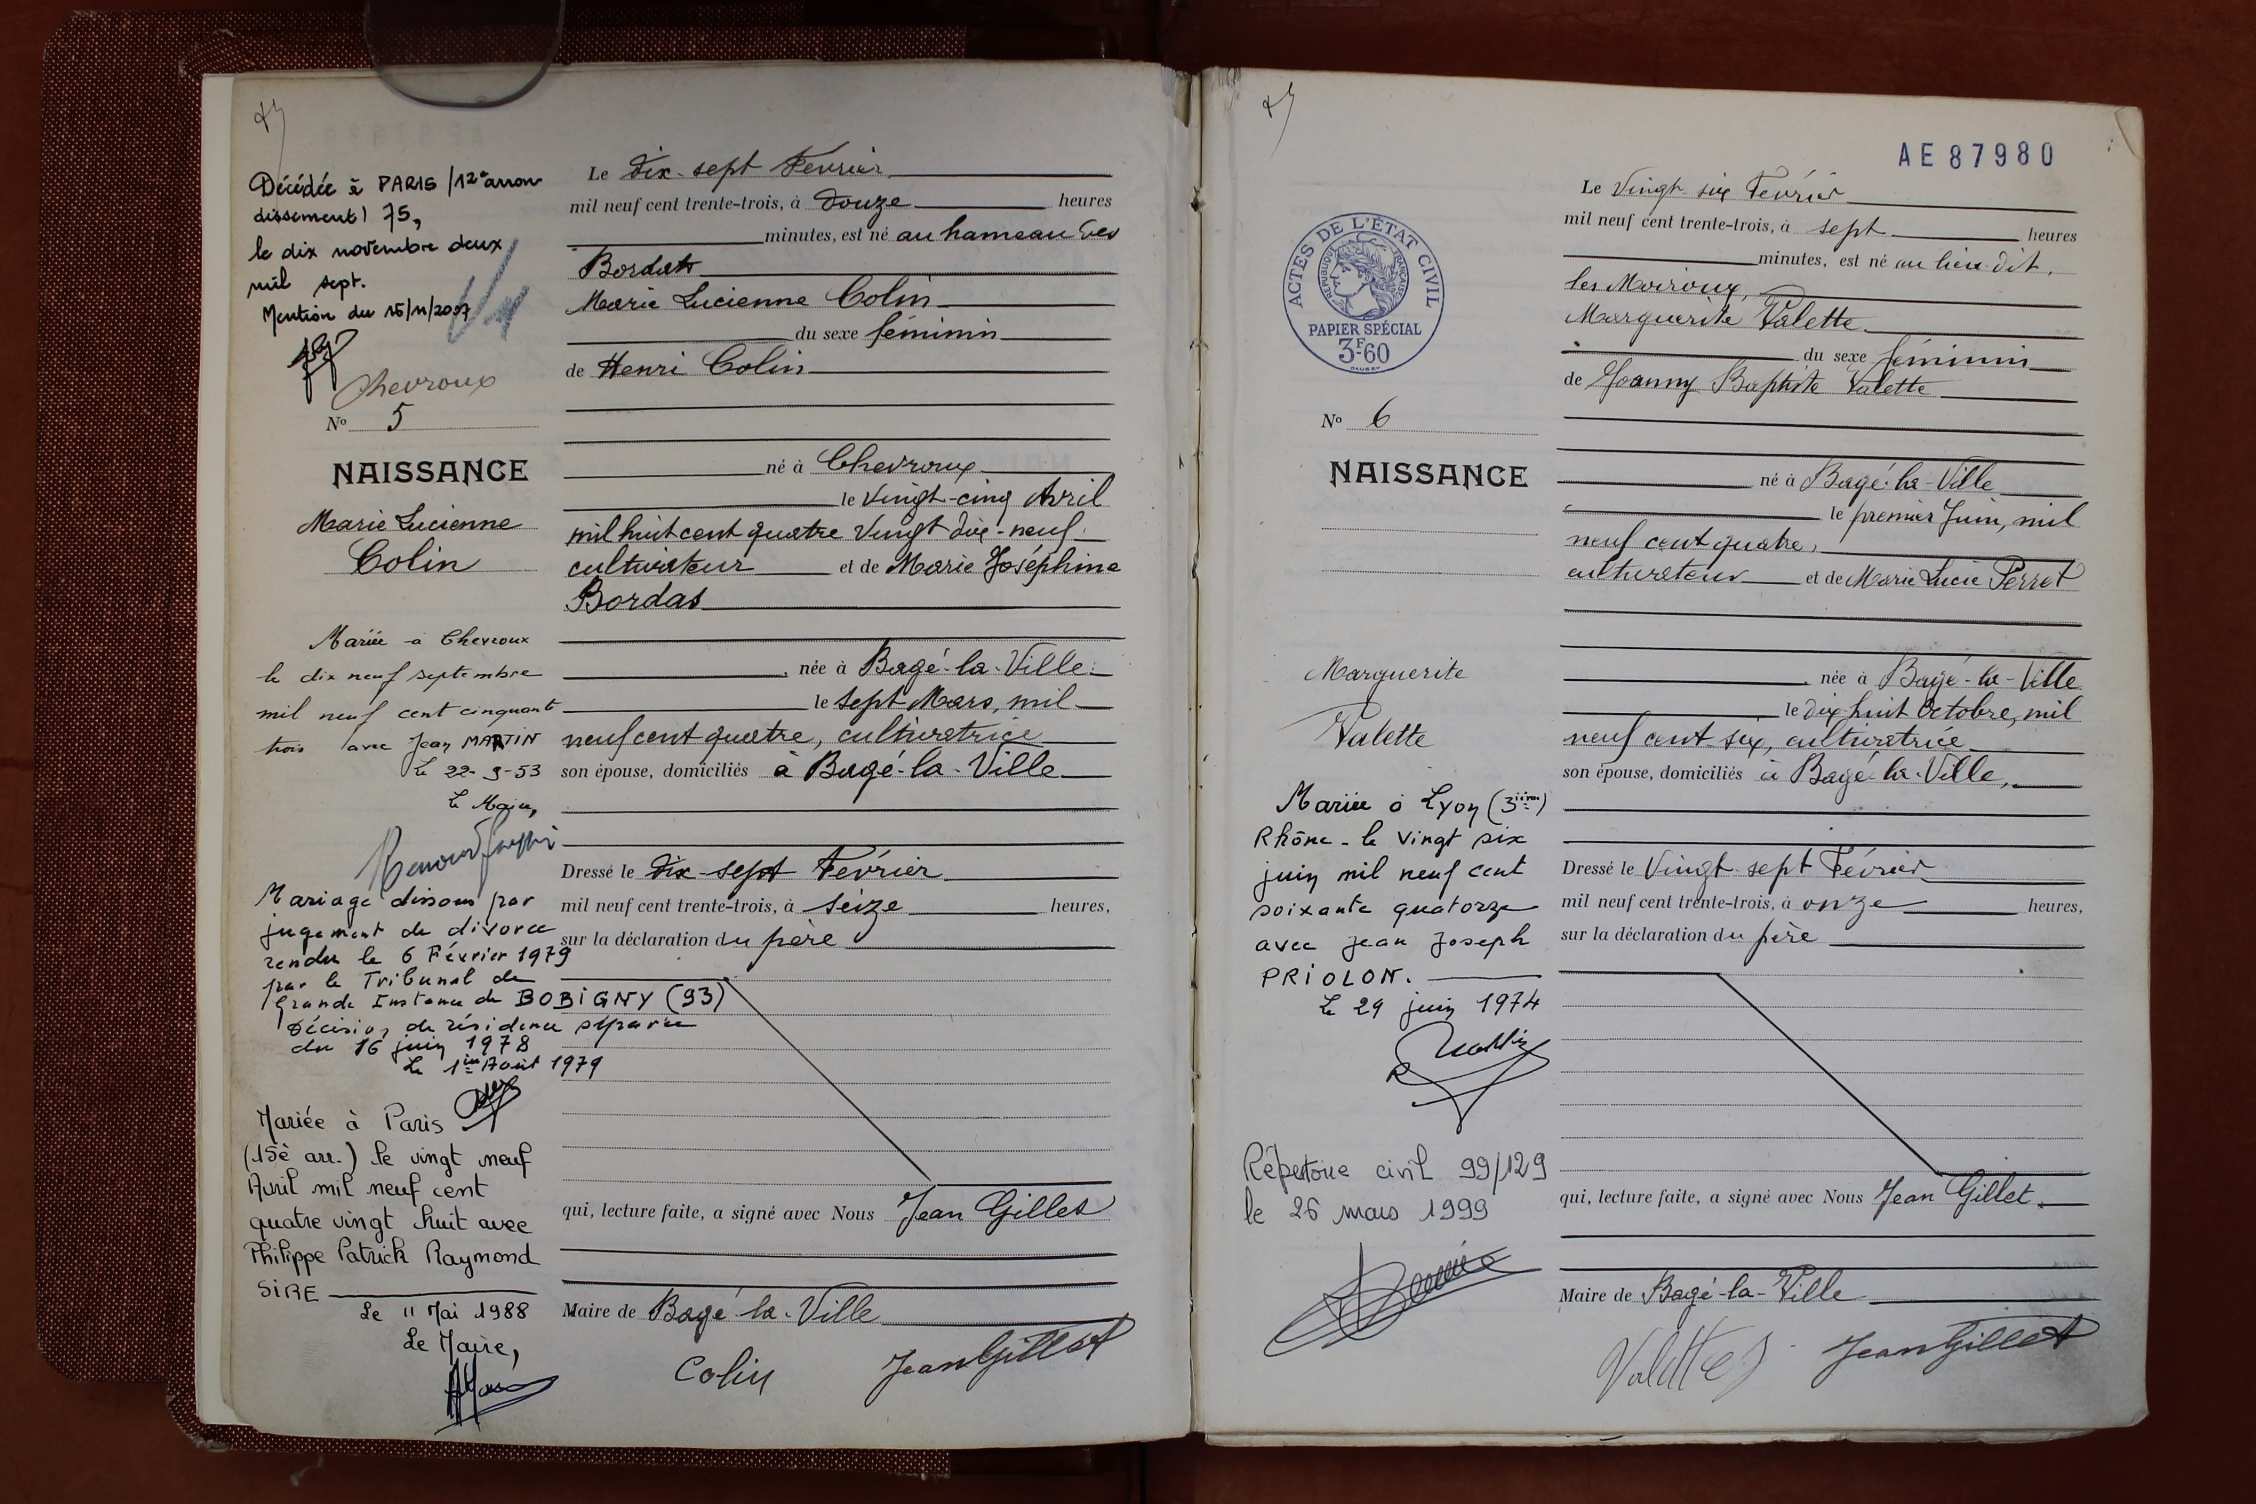 Décédée à PARIS (12e arron
dissement) 75,
le dix novembre deux
mil sept.
Mention du 15/11/2007
Chevroux
No 5
NAISSANCE
Marie Lucienne
Colin
Mariée à Chevroux
le dix neuf septembre
mil neuf cent cinquante
trois avec Jean MARTIN
Le 22-9-53
Le Maire,
Mariage dissous par
jugement de divorce
rendu le 6 Février 1979
par le Tribunal de
Grande Instance de BOBIGNY (93)
Décision de résidence séparée
du 16 juin 1978
Le 1ier Août 1979
Mariée à Paris
(15è arr.) le vingt neuf
Avril mil neuf cent
quatre vingt huit avec
Philippe Patrick Raymond
SIRE
Le 11 Mai 1988
Le Maire,
Le dix-sept Fevrier
mil neuf cent trente-trois, à douze heures
minutes, est né au hameau des
Bordats
Marie Lucienne Colin
du sexe féminin
de Henri Colin
né à Chevroux
le vingt-cinq Avril
mil huit cent quatre vingt dix-neuf
cultivateur et de Marie Joséphine
Bordas
née à Bagé-la-Ville
le sept Mars, mil
neuf cent quatre, cultivatrice
son épouse, domiciliés à Bagé-la-Ville
Dressé le dix-sept Février
mil neuf cent trente-trois, à seize heures,
sur la déclaration du père
qui, lecture faite, a signé avec Nous Jean Gillet
Maire de Bagé-la-Ville
Colin JeanGillet
AE87980
ACTES DE L'ÉTAT CIVIL
RÉPUBLIQUE FRANÇAISE
PAPIER SPÉCIAL
3F60
No 6
NAISSANCE
Marguerite
Valette
Mariée à Lyon (3ième)
Rhône - le vingt six
juin mil neuf cent
soixante quatorze
avec Jean Joseph
PRIOLON.
Le 29 juin 1974
Répertoire civil 99/129
le 26 mars 1999
Le Vingt-six Février
mil neuf cent trente-trois, à sept heures
minutes, est né au lieu dit,
les Moiroux,
Marguerite Valette
du sexe féminin
de Joanny Baptiste Valette
né à Bagé-la-Ville
le premier Juin, mil
neuf cent quatre,
cultivateur et de Marie Lucie Perret
née à Bagé-la-Ville
le dix huit Octobre, mil
neuf cent six, cultivatrice
son épouse, domiciliés à Bagé-la-Ville,
Dressé le Vingt-sept Février
mil neuf cent trente-trois, à onze heures,
sur la déclaration du père
qui, lecture faite, a signé avec Nous Jean Gillet
Maire de Bagé-la-Ville
Valette JeanGillet